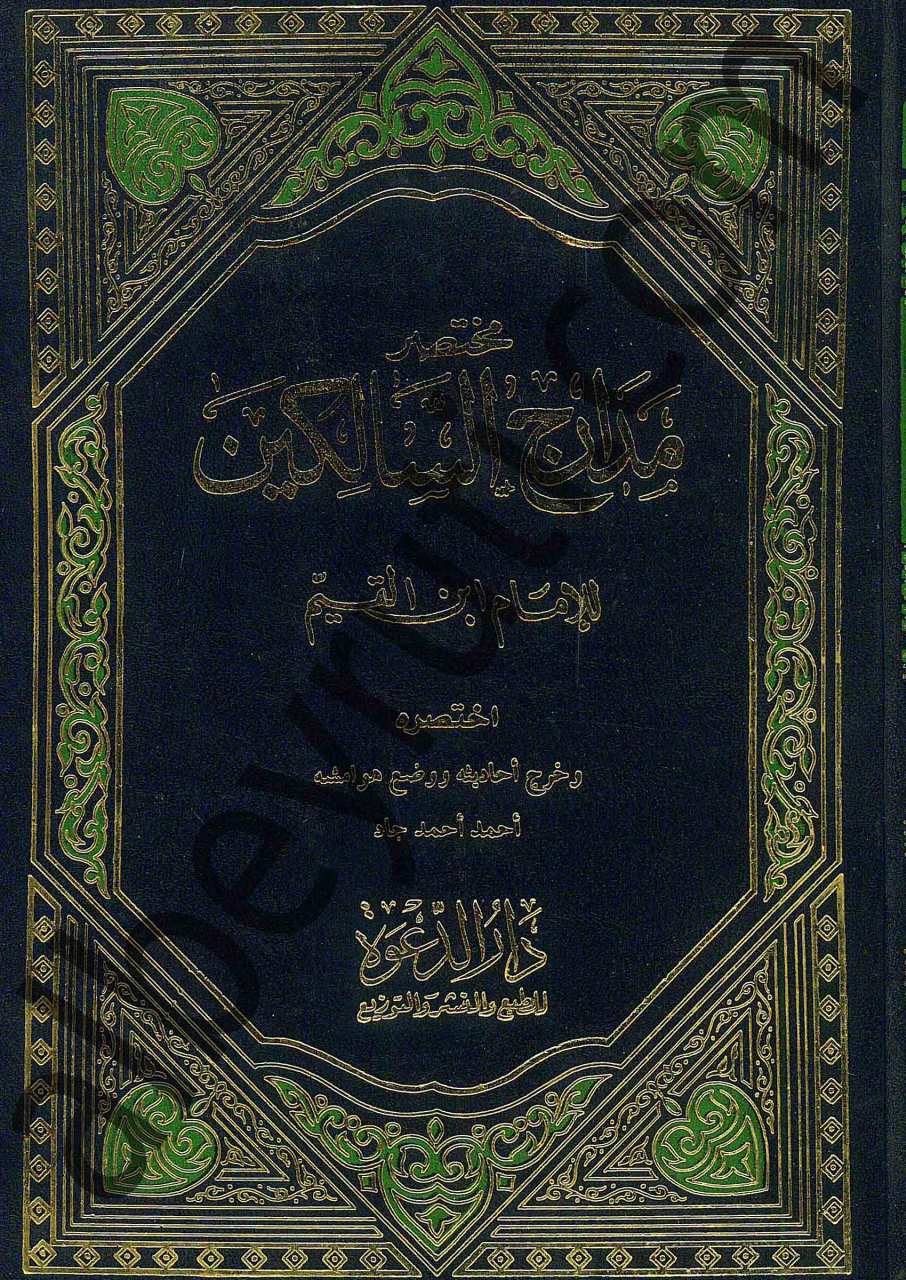 مختصر
مَدَارِجُ السَّالِكِينَ
للإمام ابن القيم
اختصره
وخرج أحاديثه ووضع هوامشه
أحمد أحمد جاد
دَارُ الدَّعْوَة
للطبع والنشر والتوزيع
albeyrut.com